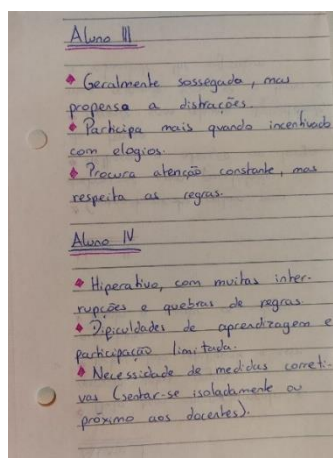 Aluno III
◆ Geralmente sossegada, mas
propensa a distrações.
◆ Participa mais quando incentivada
com elogios.
◆ Procura atenção constante, mas
respeita as regras.
Aluno IV
◆ Hiperativo, com muitas inter-
rupções e quebras de regras.
◆ Dificuldades de aprendizagem e
participação limitada.
◆ Necessidade de medidas correti-
vas (sentar-se isoladamente ou
próximo aos docentes).